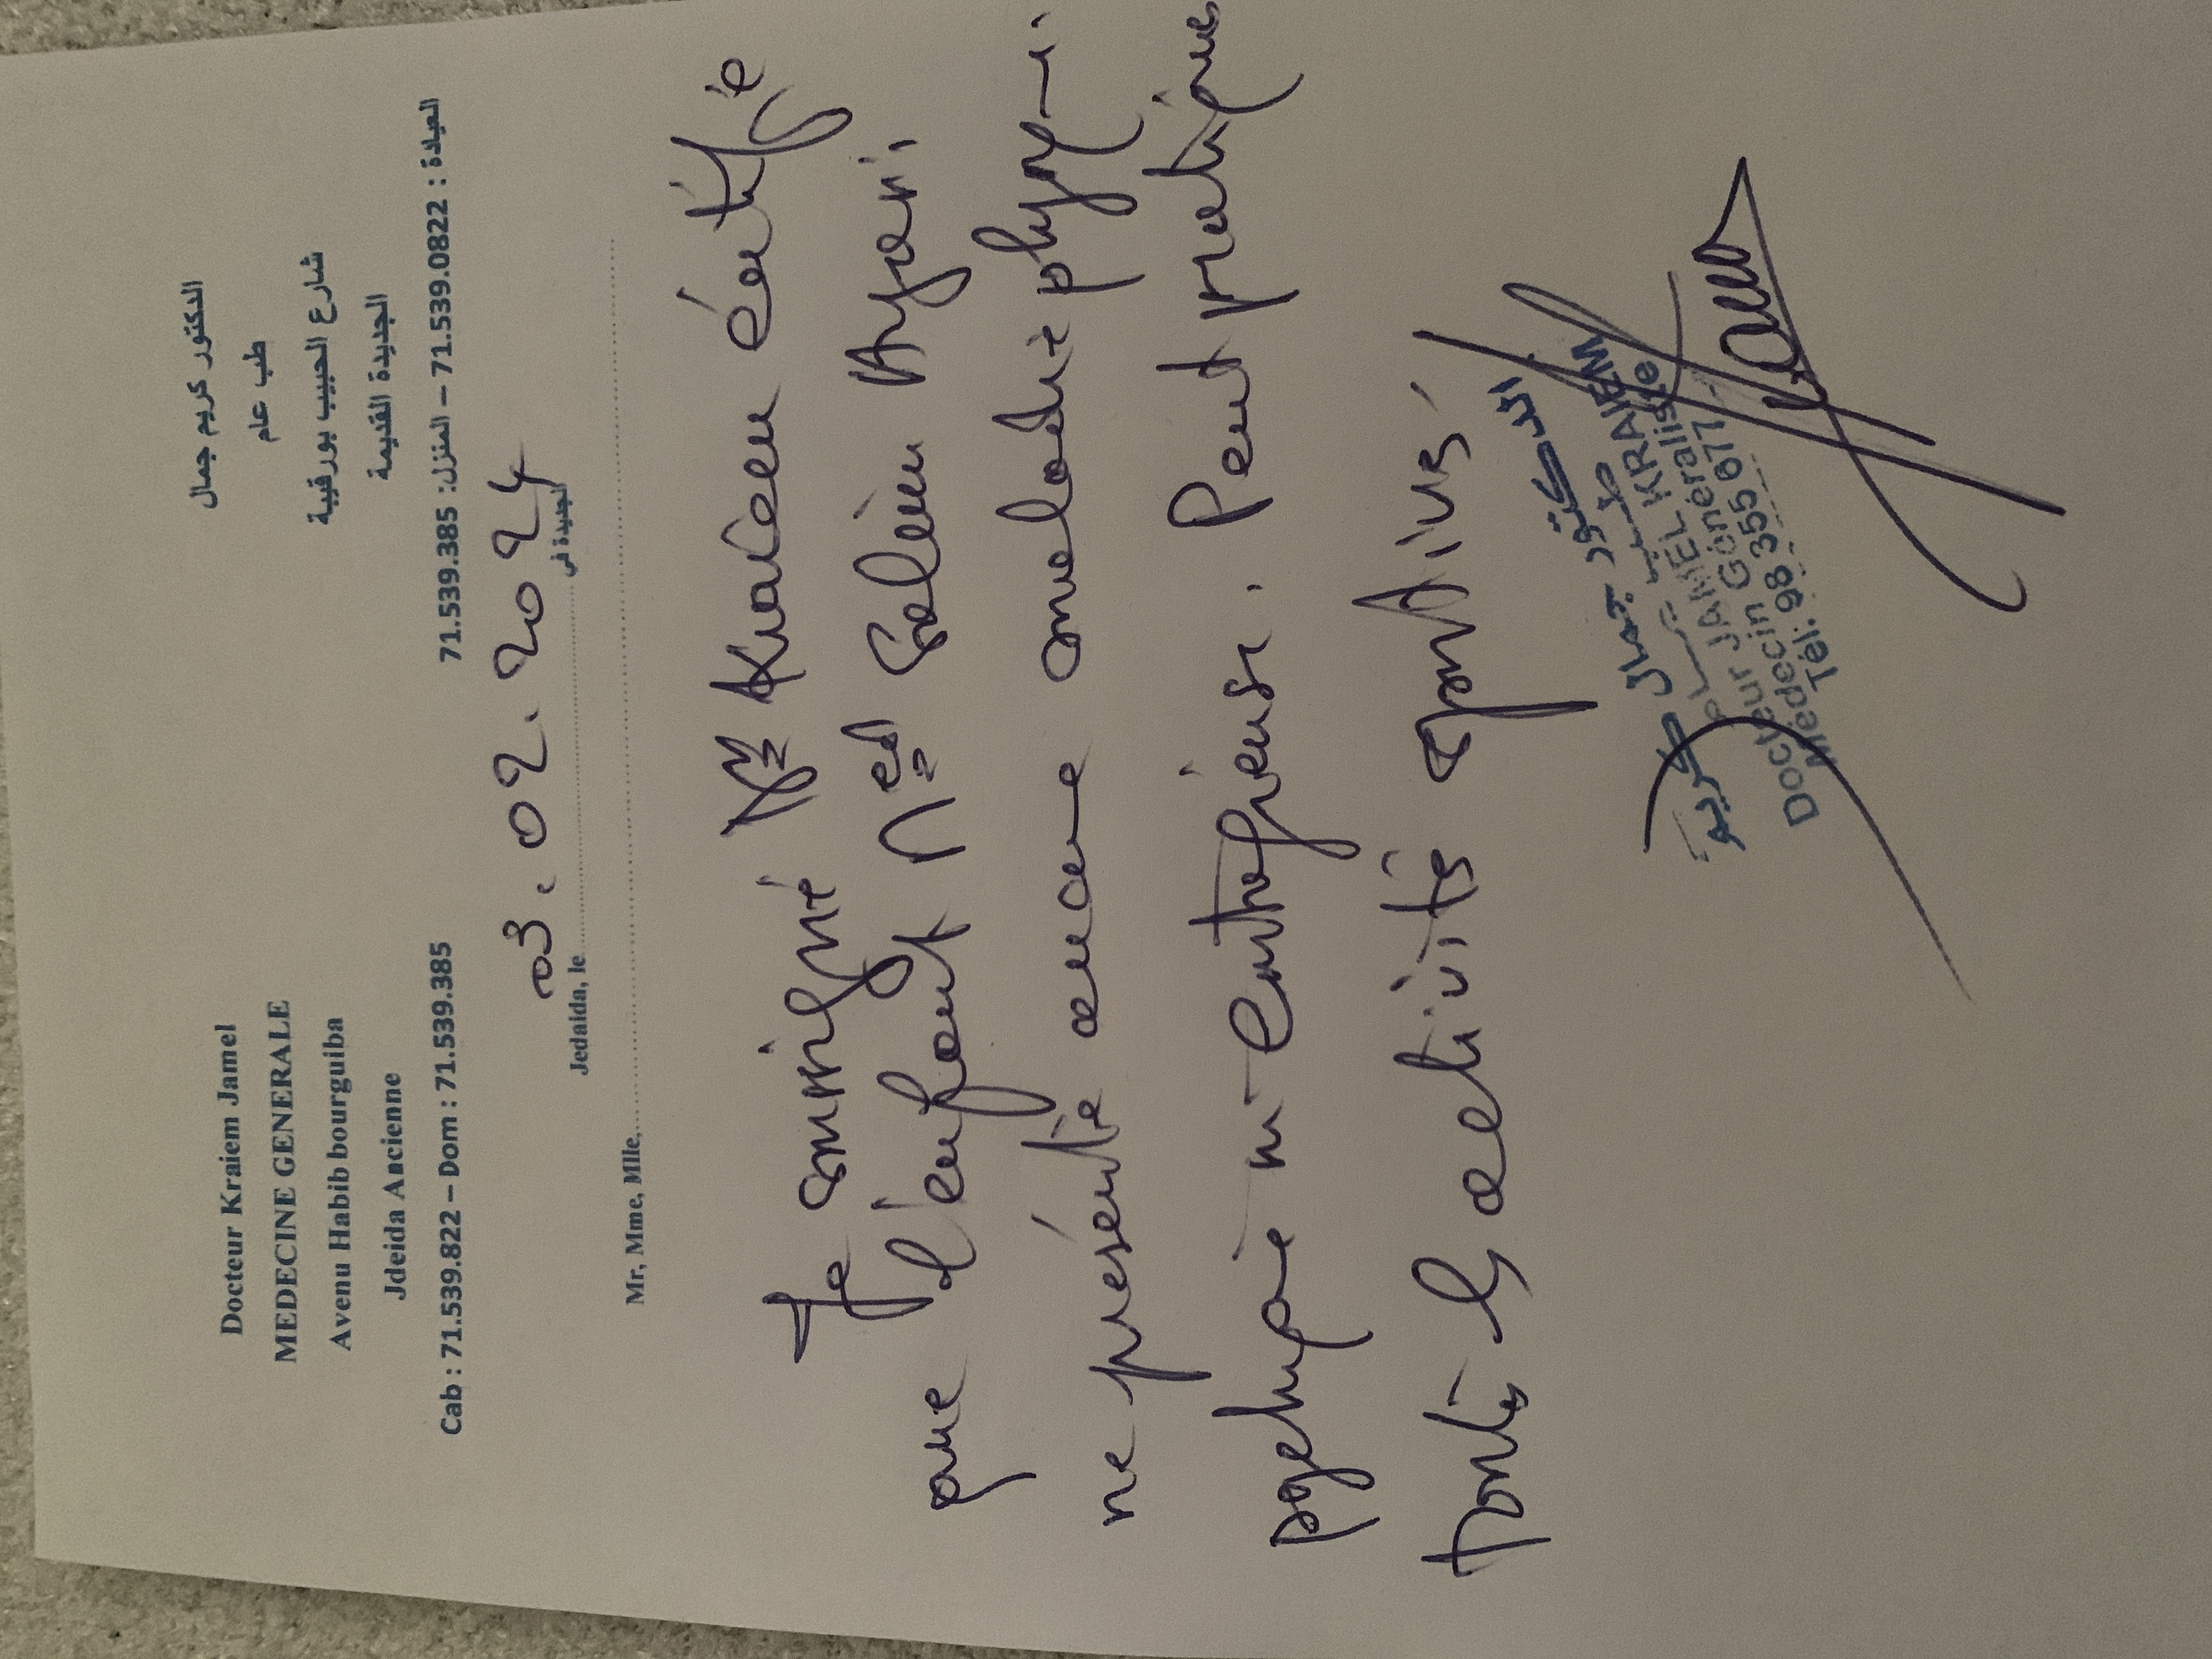 Docteur Kraiem Jamel
MEDECINE GENERALE
Avenu Habib bourguiba
Jdeida Ancienne
Cab : 71.539.822 – Dom : 71.539.385
الدكتور كريم جمال
طب عام
شارع الحبيب بورقيبة
الجديدة القديمة
العيادة : 71.539.0822 – المنزل: 71.539.385
03.02.2024
Jedaida, le الجديدة في
Mr, Mme, Mlle,
Je soussigné Dr Kraiem certifie
que l'enfant Med Selim Ayari
ne présente aucune maladie physi-
psychique ni contagieuse. Peut pratiquer
toutes activités sportives
الدكتور جمال كريم
Docteur JAMEL KRAIEM
Médecin Généraliste
Tél: 98 355 677